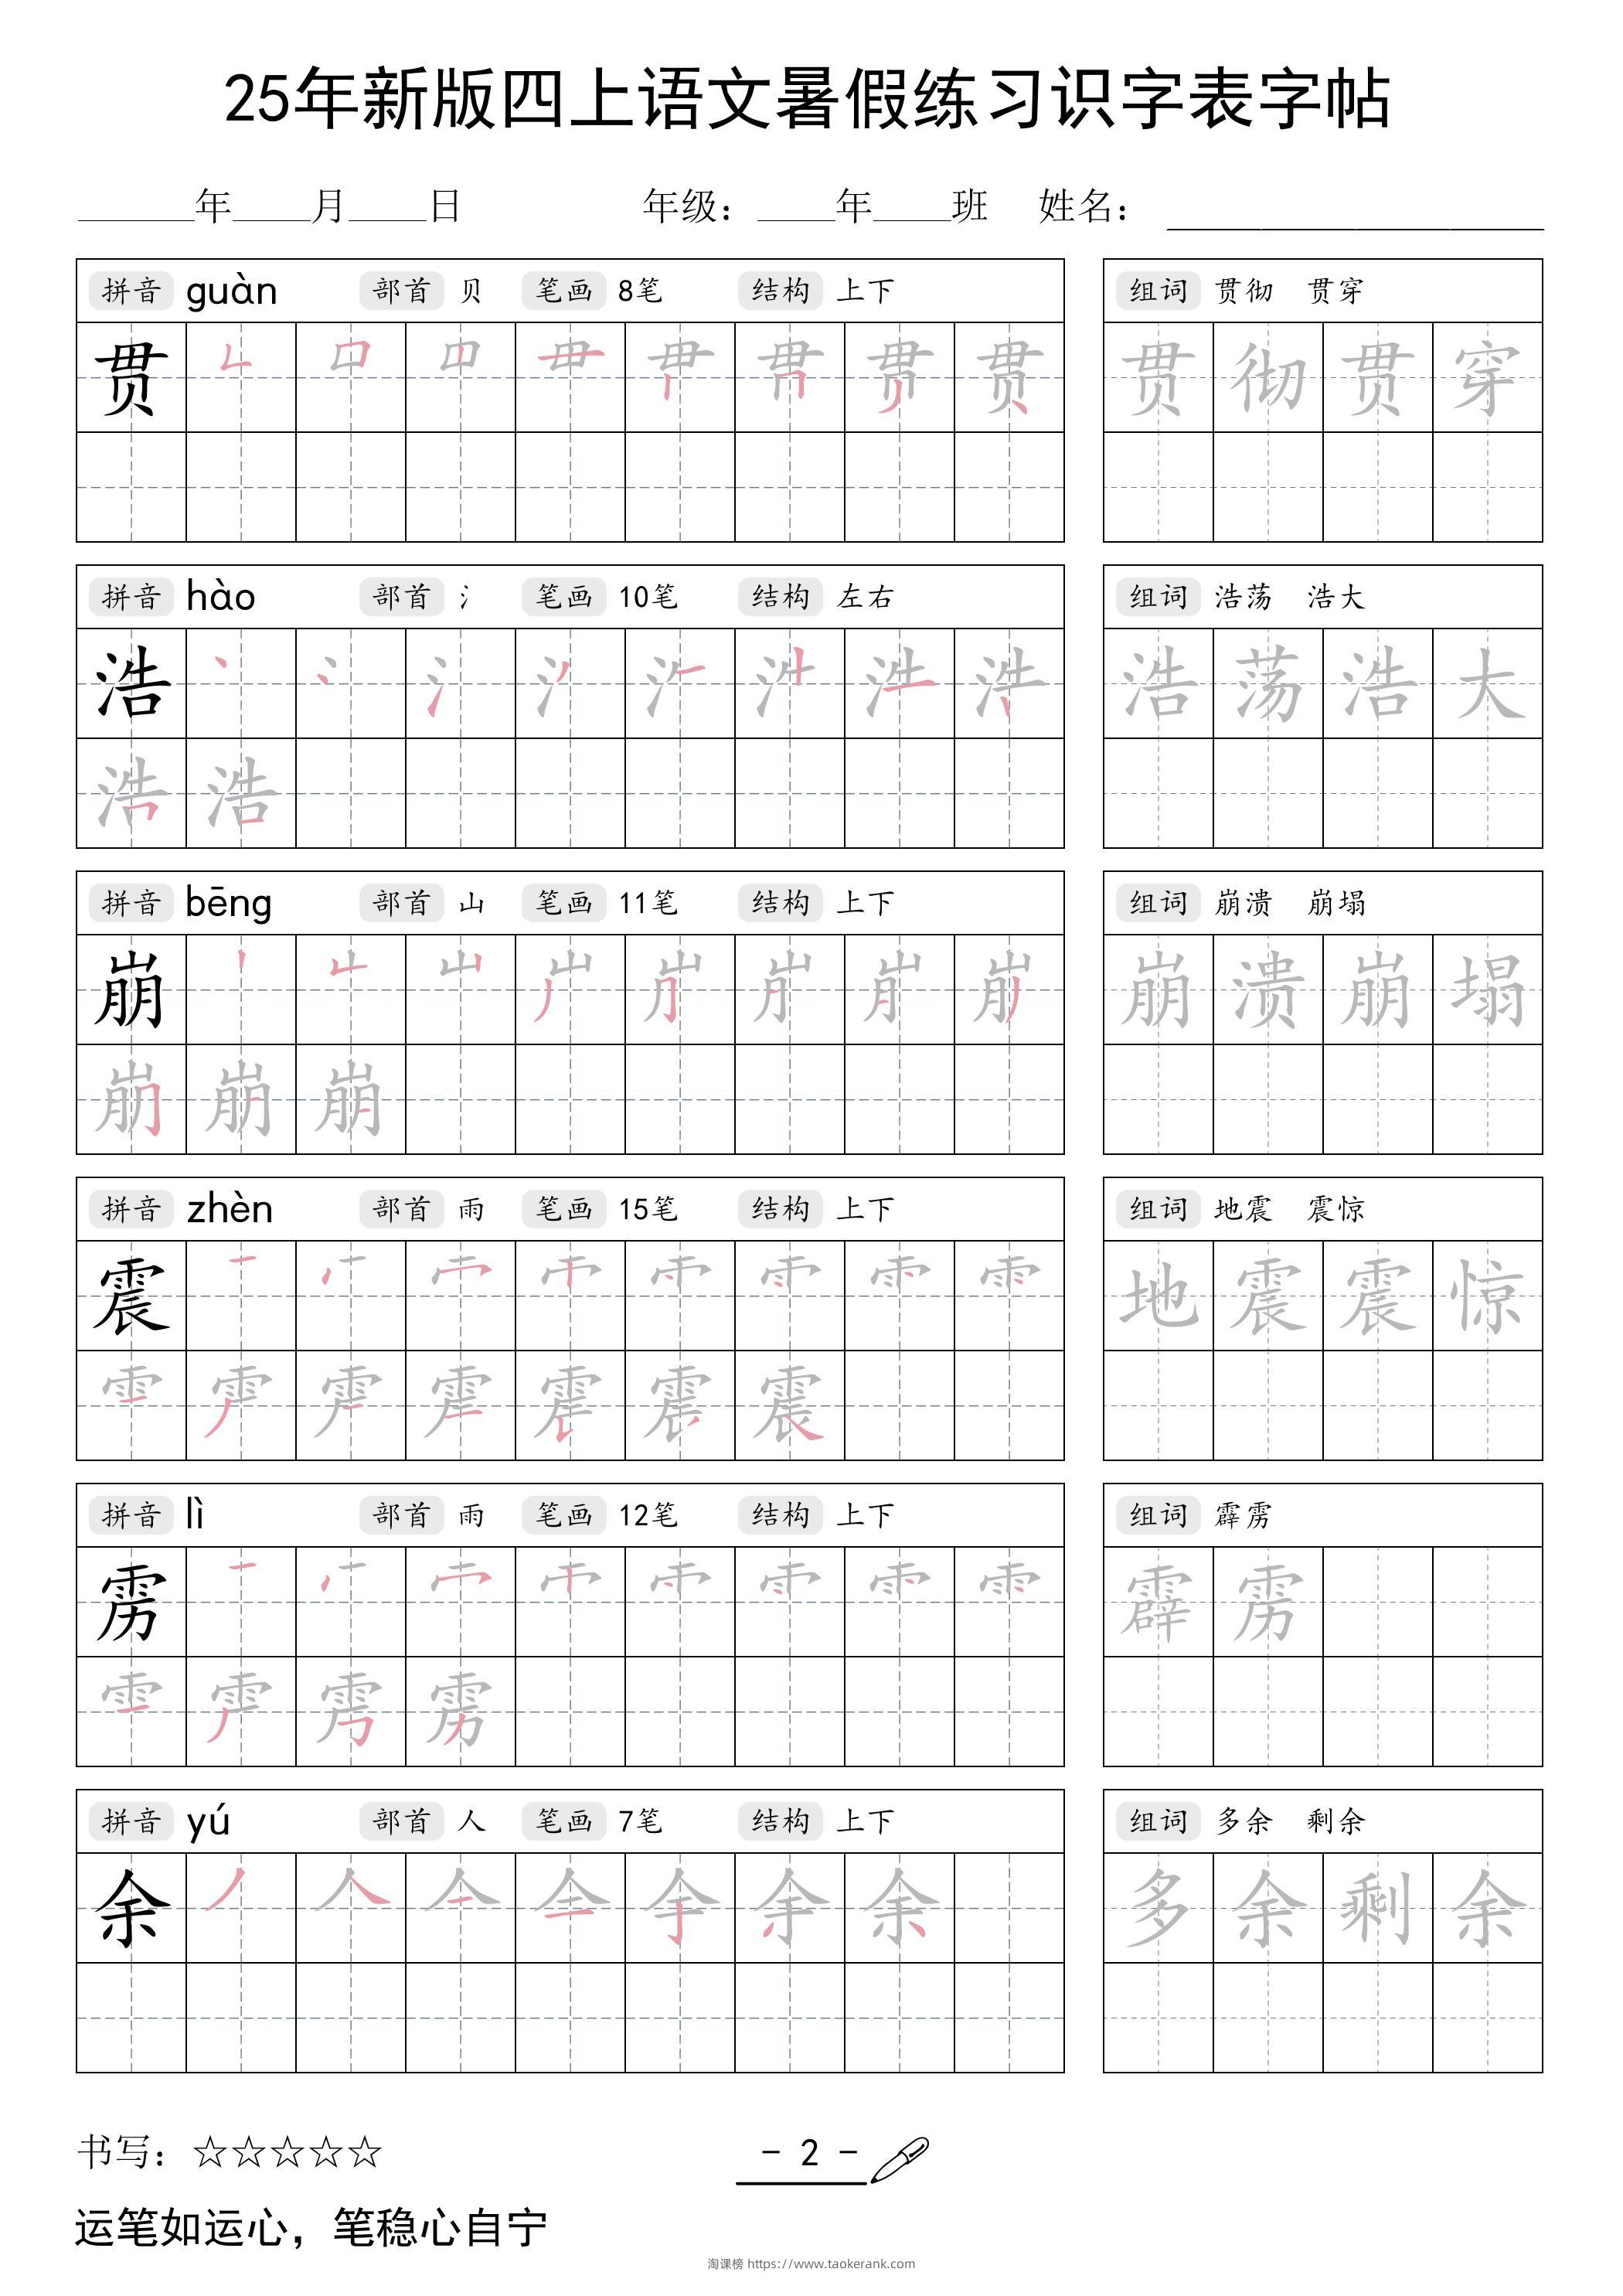 25年新版四上语文暑假练习识字表字帖
______年____月____日 年级：____年____班 姓名：
拼音 guàn 部首 贝 笔画 8笔 结构 上下 组词 贯彻 贯穿
贯 贯 彻 贯 穿
拼音 hào 部首 氵 笔画 10笔 结构 左右 组词 浩荡 浩大
浩 浩 荡 浩 大
浩 浩
拼音 bēng 部首 山 笔画 11笔 结构 上下 组词 崩溃 崩塌
崩 崩 溃 崩 塌
崩 崩 崩
拼音 zhèn 部首 雨 笔画 15笔 结构 上下 组词 地震 震惊
震 地 震 震 惊
震
拼音 lì 部首 雨 笔画 12笔 结构 上下 组词 霹雳
雳 霹 雳
雳
拼音 yú 部首 人 笔画 7笔 结构 上下 组词 多余 剩余
余 余 多 余 剩 余
书写：☆☆☆☆☆ - 2 -
运笔如运心，笔稳心自宁
淘课榜 https://www.taokerank.com